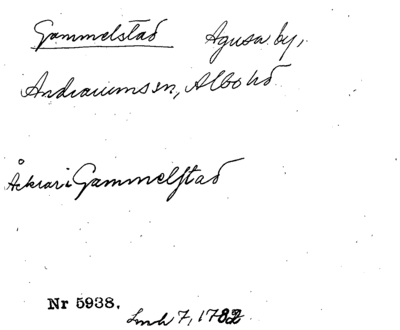 Gammelstad Agusa by,
Andrarums sn, Albo hd
Åkrar i Gammelstad
Nr 5938.
Lmh 7, 1782